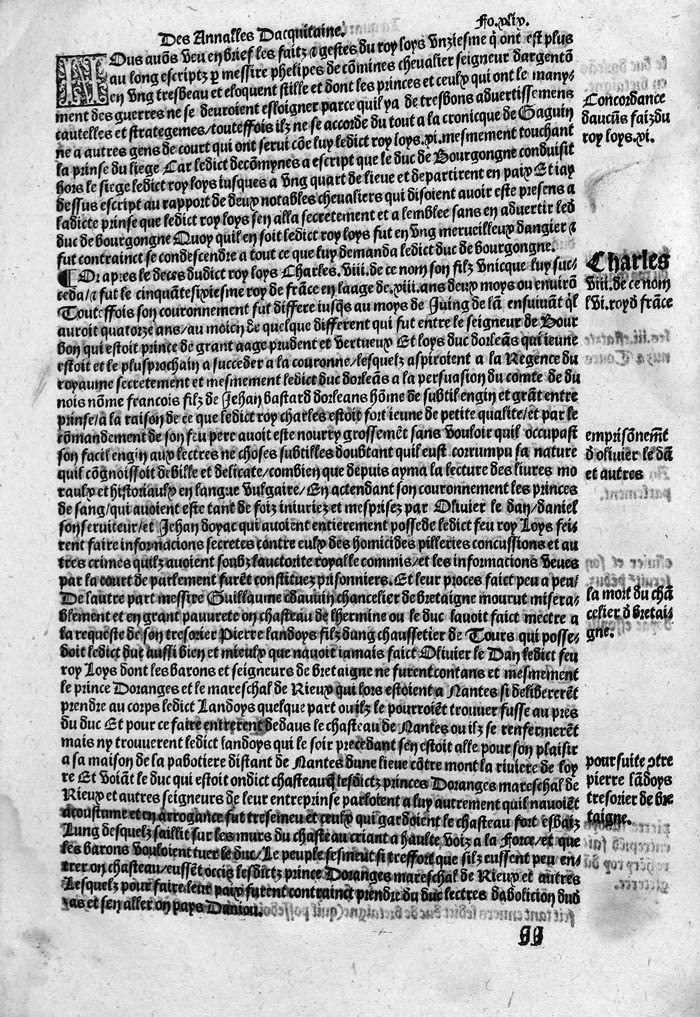 Des Annalles Dacquitaine. Fo. xlix.
NOus auōs veu en brief les faitz & gestes du roy loys vnziesme q̄ ont est plus
au long escriptz p messire phelipes de cōmines chevalier seigneur dargentō
en vng tresbeau et eloquent stille et dont les princes et ceulx qui ont le many-
ment des guerres ne se deuroient esloigner parce quil ya de tresbons aduertissemens
cautelles et strategemes/touteffois ilz ne se accorde du tout a la cronicque de Gaguin
ne a autres gens de court qui ont serui cōe luy ledict roy loys.xi.mesmement touchant
la prinse du liege Car ledict decōmynes a escript que le duc de Bourgongne conduisit
hors le siege ledict roy loys iusques a vng quart de lieue et departirent en paix Et iay
dessus escript au rapport de deux notables cheualiers qui disoient auoir este presens a
ladicte prinse que ledict roy loys sen alla secretement et a lemblee sans en aduertir led
duc de bourgongne Quoy quil en soit ledict roy loys fut en vng merueilleux dangier &
fut contrainct se condescendre a tout ce que luy demanda ledict duc de bourgongne.
¶ Or apres le deces dudict roy loys Charles.viii.de ce nom son filz vnicque luy suc-
ceda/& fut le cinquātesixiesme roy de frāce en laage de.xiii.ans deux moys ou enuirō
Touteffois son couronnement fut differe iusq̄s au moys de Juing de lā ensuiuāt q̄l
auroit quatorze ans/au moien de quelque different qui fut entre le seigneur de Bour
bon qui estoit prince de grant aage prudent et vertueux Et loys duc dorleās qui ieune
estoit et le plusprochain a succeder a la couronne/lesquelz aspiroient a la Regence du
royaume secretement et mesmement ledict duc dorleās a la persuasion du comte de du
nois nōme francois filz de Jehan bastard dorleans hōme de subtil engin et grāt entre
prinse/a la raison de ce que ledict roy charles estoit fort ieune de petite qualite/et par le
cōmandement de son feu pere auoit este nourry grossemēt sans vouloir quil occupast
son facil engin aux lectres ne choses subtilles doubtant quil eust corrumpu sa nature
quil cōgnoissoit debille et delicate/combien que depuis ayma la lecture des liures mo
raulx et historiaulx en langue vulgaire/En actendant son couronnement les princes
de sang/qui auoient este tant de foiz iniuriez et mesprisez par Oliuier le dan/daniel
son seruiteur/et Jehan doyac qui auoient entierement possede ledict feu roy Loys fei-
rent faire informacions secretes contre eulx des homicides pilleries concussions et au
tres crimes quilz auoient soubz lauctorite royalle commis/et les informations veues
par la court de parlement furēt constituez prisonniers. Et leur proces faict peu a peu/
De lautre part messire Guillaume chauuin chancelier de bretaigne mourut misera-
blement et en grant pauurete on chasteau de lhermine ou le duc lauoit faict mectre a
la requeste de son tresorier Pierre landoys filz dung chaussetier de Tours qui posse-
doit ledict duc aussi bien et mieulx que nauoit iamais faict Oliuier le Dan ledict feu
roy Loys dont les barons et seigneurs de bretaigne ne furent contans et mesmement
le prince Doranges et le mareschal de Rieux qui lors estoient a Nantes si delibererēt
prendre au corps ledict Landoys quelque part ou ilz le pourroiēt trouuer fusse au pres
du duc Et pour ce faire entrerent dedaus le chasteau de Nantes ou ilz se renfermerēt
mais ny trouuerent ledict landoys qui le soir precedant sen estoit alle pour son plaisir
a sa maison de la pabotiere distant de Nantes dune lieue cōtre mont la riuiere de loy
re Et voiāt le duc qui estoit ondict chasteau q̄ lesdictz princes Doranges mareschal de
Rieux et autres seigneurs de leur entreprinse parloient a luy autrement quil nauoiēt
acoustume et en arrogance fut tresesmeu et ceulx qui gardoient le chasteau fort esbaiz
Lung desquelz saillit sur les murs du chasteau criant a haulte voiz a la Force/et que
les barons vouloient tuer le duc/Le peuple sesmeut si treffort que silz eussent peu en-
trer on chasteau/eussēt occis lesdictz prince Doranges mareschal de Rieux et autres
Lesquelz pour faire leur paix furent contrainct prendre du duc lectres dabolicion dud
cas et sen aller on pays Daniou.
Concordance
daucūs faiz du
roy loys.xi.
Charles
viii.de ce nom
lvi.roy d frāce
emprisōnemēt
d oliuier le dā
et autres
la mort du chā
celier d bretai-
gne.
poursuite ɔtre
pierre lādoys
tresorier de bre
taigne.